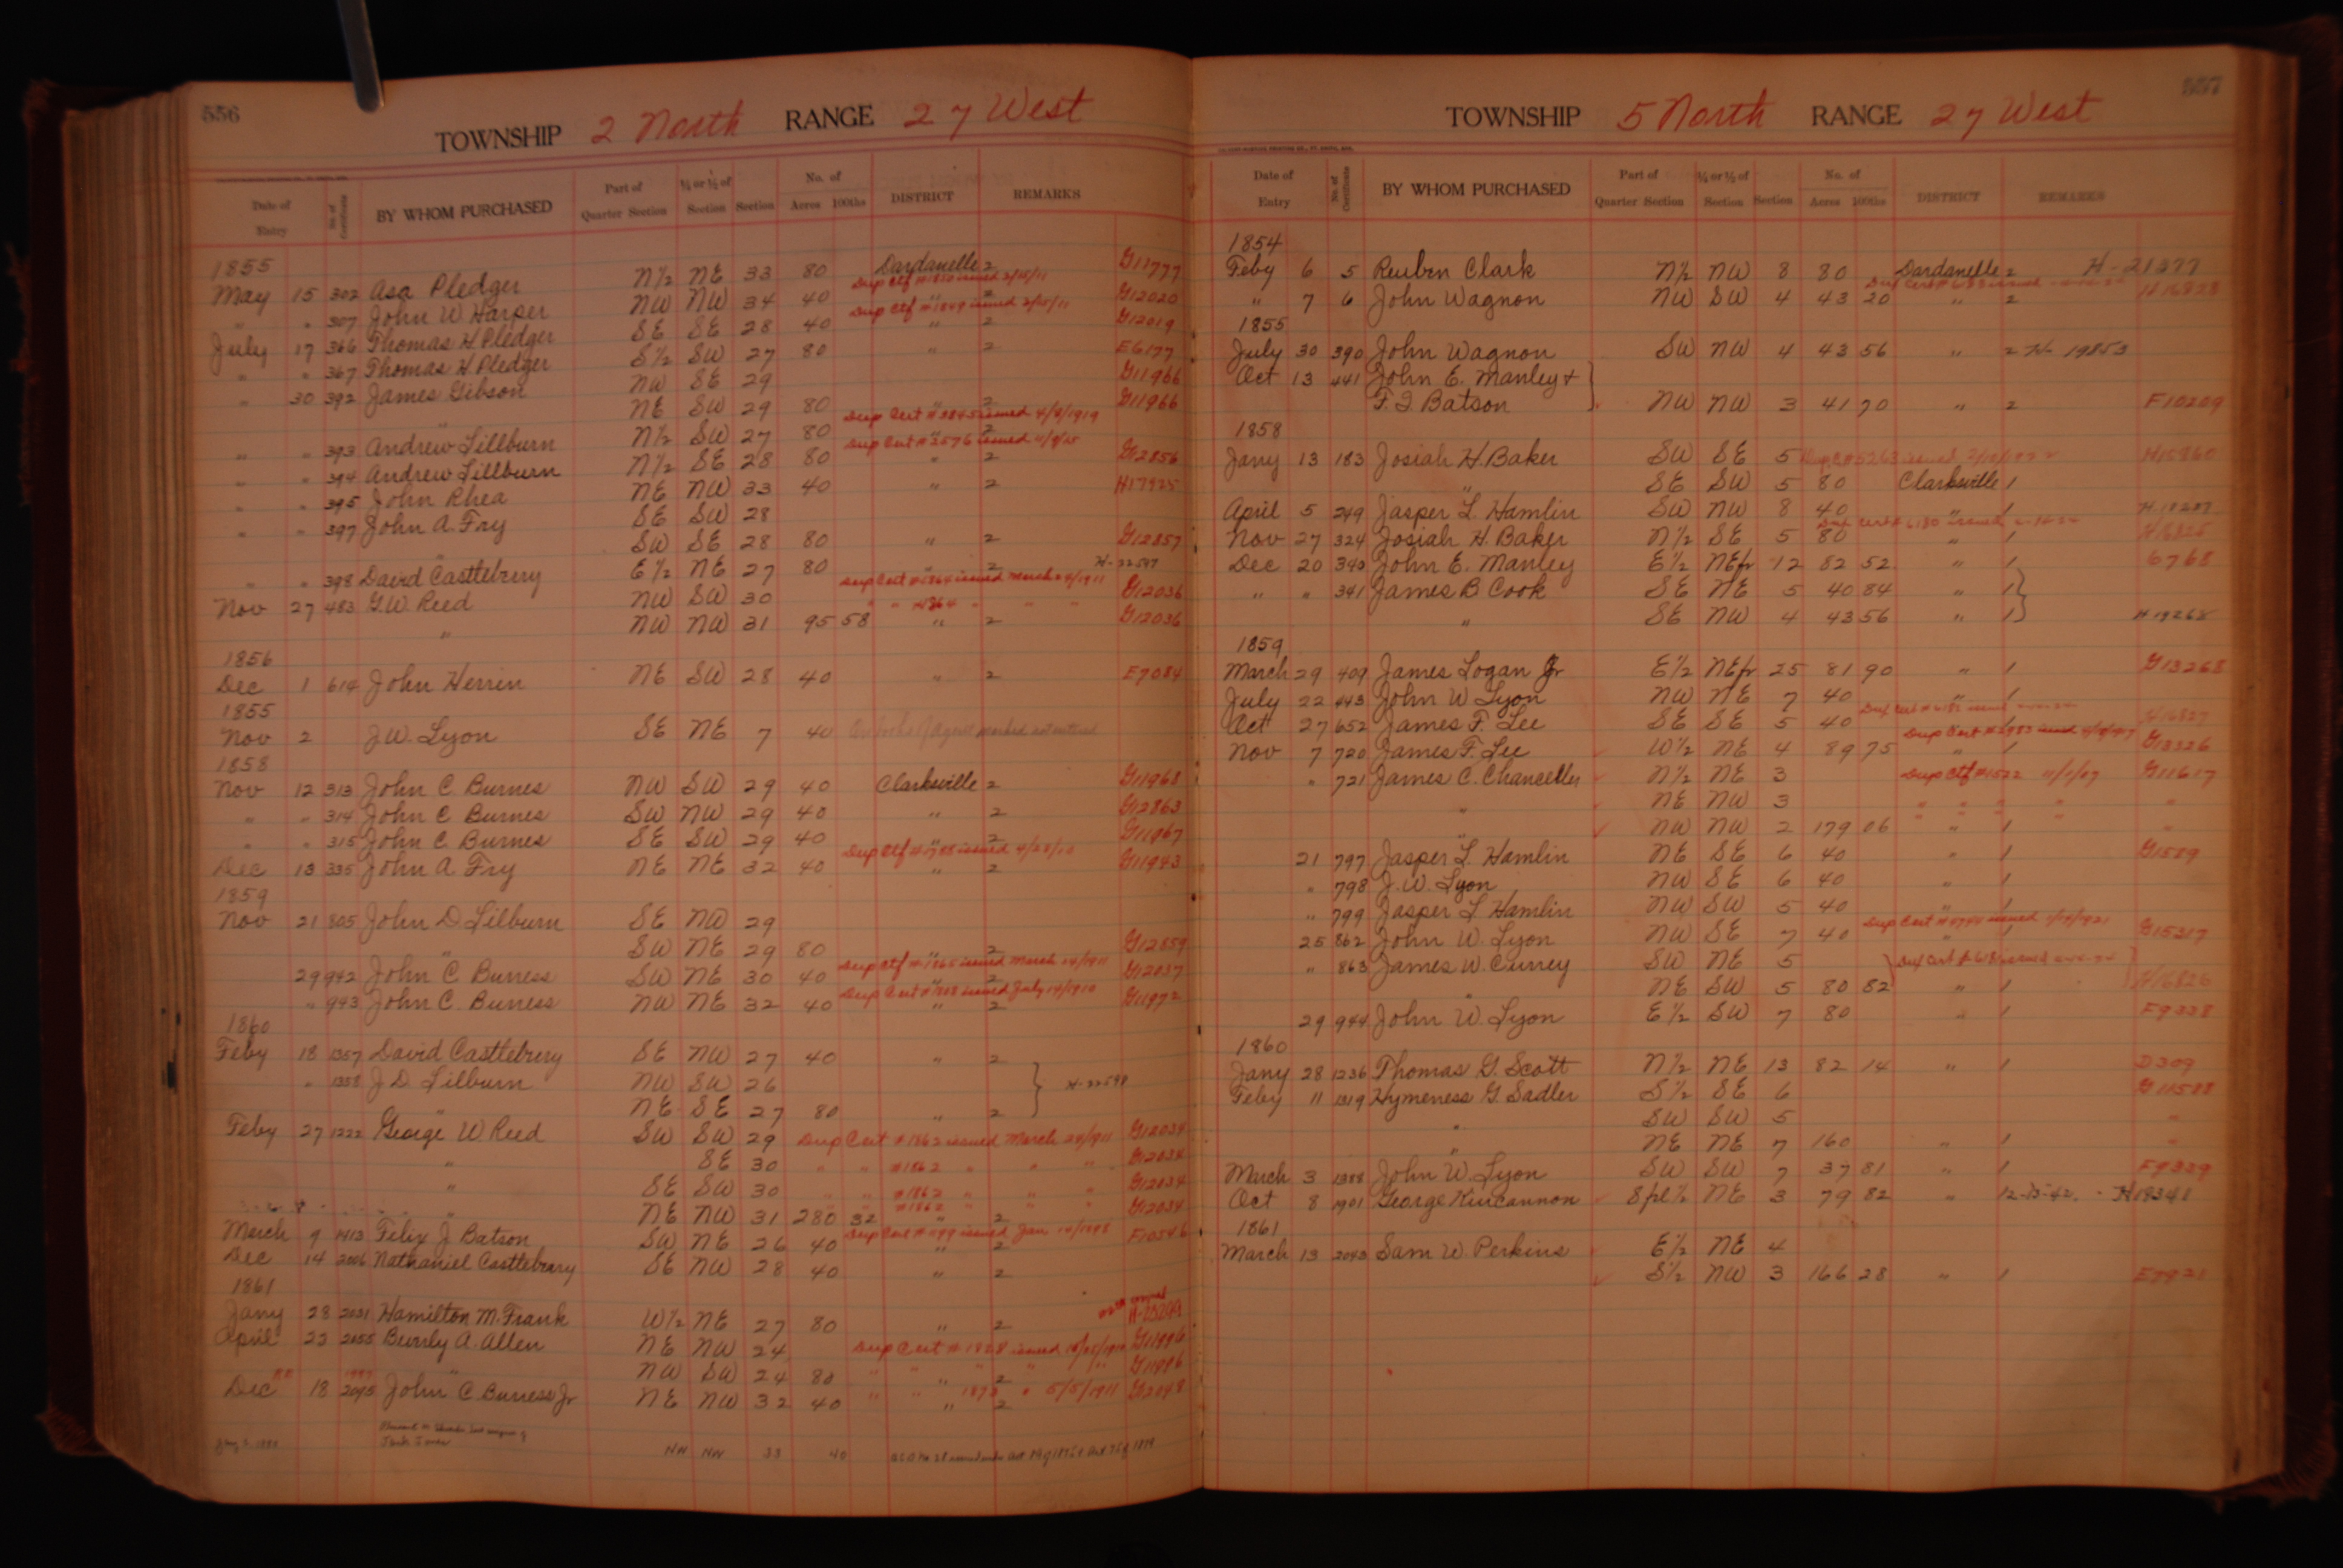 556
TOWNSHIP 2 North RANGE 27 West
Date of Entry No. of Certificate BY WHOM PURCHASED Part of Quarter Section ¼ or ½ of Section Section No. of Acres 100ths DISTRICT REMARKS
1855
May 15 302 Asa Pledger N½ NE 33 80 Dardanelle 2 G11777
Dup Ctf # 1850 issued 2/25/11
" " 307 John W Harper NW NW 34 40 " 2 G12020
Dup Ctf # 1849 issued 2/25/11
July 17 366 Thomas H Pledger SE SE 28 40 " 2 G12019
" " 367 Thomas H Pledger S½ SW 27 80 " 2 E6177
" 30 392 James Gibson NW SE 29 G11966
" NE SW 29 80 2 G11966
Dup Cert # 3845 issued 4/8/1919
" " 393 Andrew Lillburn N½ SW 27 80 " 2
Dup Cert # 2576 issued
" " 394 Andrew Lillburn N½ SE 28 80 " 2 G12856
" " 395 John Rhea NE NW 33 40 " 2 H17925
" " 397 John A. Fry SE SW 28
" SW SE 28 80 " 2 G12857
" " 398 David Castlebery E½ NE 27 80 " 2 H-22597
Dup Cert # 1864 issued March 24/1911
Nov 27 483 G.W. Reed NW SW 30 G12036
" " 1864 " " "
" NW NW 31 95 58 " 2 G12036
1856
Dec 1 614 John Herrin NE SW 28 40 " 2 E7084
1855
Nov 2 J.W. Lyon SE NE 7 40 marked not entered
1858
Nov 12 313 John C Burnes NW SW 29 40 Clarksville 2 G11968
" " 314 John C Burnes SW NW 29 40 " 2 G12863
" " 315 John C Burnes SE SW 29 40 " 2 G11967
Dup Ctf # 1788 issued 4/28/10
Dec 13 335 John A Fry NE NE 32 40 " 2 G11943
1859
Nov 21 805 John D Lilburn SE NW 29
" SW NE 29 80 " 2 G12859
Dup Ctf # 1865 issued March 14/1911
29 942 John C Burness SW NE 30 40 " 2 G12037
Dup Cert # 1808 issued July 14/1910
" 943 John C. Burness NW NE 32 40 " 2 G11972
1860
Feby 18 1357 David Castlebery SE NW 27 40 " 2
" 1358 J D Lilburn NW SW 26 H-22598
" NE SE 27 80 " 2
Feby 27 1222 George W Reed SW SW 29 Dup Cert # 1862 issued March 24/1911 G12034
" SE 30 " " #1862 " " " G12034
" SE SW 30 " " #1862 " " " G12034
" NE NW 31 280 32 " #1862 2 G12034
Dup Cert # 1099 issued Jan 14/1898
March 9 1413 Felix J Batson SW NE 26 40 " 2 F10546
Dec 14 2006 Nathaniel Castlebeary SE NW 28 40 " 2
1861
Jany 28 2031 Hamilton M. Frank W½ NE 27 80 " 2 H-23299
April 23 2055 Beverly A. Allen NE NW 24 Dup Cert # 1828 issued G11996
" NW SW 24 80 " " " 2 " " G11996
Dec 18 2095 John C Burness Jr NE NW 32 40 " " 1873 " 5/5/1911 2 G12048
NW NW 33 40
557
TOWNSHIP 5 North RANGE 27 West
Date of Entry No. of Certificate BY WHOM PURCHASED Part of Quarter Section ¼ or ½ of Section Section No. of Acres 100ths DISTRICT REMARKS
1854
Feby 6 5 Reuben Clark N½ NW 8 80 Dardanelle 2 H-21377
" 7 6 John Wagnon NW SW 4 43 20 " 2 H16828
1855
July 30 390 John Wagnon SW NW 4 43 56 " 2 H-19853
Oct 13 441 John E. Manley +
F. J. Batson NW NW 3 41 70 " 2 F10209
1858
Jany 13 183 Josiah H. Baker SW SE 5 H15860
" SE SW 5 80 Clarksville 1
April 5 249 Jasper L. Hamlin SW NW 8 40 " 1
Nov 27 324 Josiah H. Baker N½ SE 5 80 " 1 H16825
Dec 20 340 John E. Manley E½ NEfr 12 82 52 " 1 6768
" " 341 James B Cook SE NE 5 40 84 " 1
" SE NW 4 43 56 " 1 H19268
1859
March 29 409 James Logan Jr E½ NEfr 25 81 90 " 1 G13268
July 22 443 John W Lyon NW NE 7 40 " 1
Oct 27 652 James F. Lee SE SE 5 40 1 H16827
Nov 7 720 James F. Lee W½ NE 4 89 75 " 1 G13326
" 721 James C. Chanceller N½ NE 3 Dup Ctf # 1522 11/1/07 G11617
" NE NW 3 " " " " "
" NW NW 2 179 06 " 1 "
21 797 Jasper L. Hamlin NE SE 6 40 " 1 G1589
" 798 J. W. Lyon NW SE 6 40 " 1
" 799 Jasper L Hamlin NW SW 5 40 " 1
25 862 John W. Lyon NW SE 7 40 " 1 G15317
" 863 James W. Currey SW NE 5
" NE SW 5 80 82 " 1 H16826
29 944 John W. Lyon E½ SW 7 80 " 1 F9338
1860
Jany 28 1236 Thomas G. Scott N½ NE 13 82 14 " 1 D309
Feby 11 1319 Hymeness G. Sadler S½ SE 6 G11588
" SW SW 5 "
" NE NE 7 160 " 1 "
March 3 1388 John W. Lyon SW SW 7 37 81 " 1 F9339
Oct 8 1901 George Kincannon Spl½ NE 3 79 82 " 12-15-42 H18341
1861
March 13 2043 Sam W. Perkins E½ NE 4
S½ NW 3 166 28 " 1 E7921